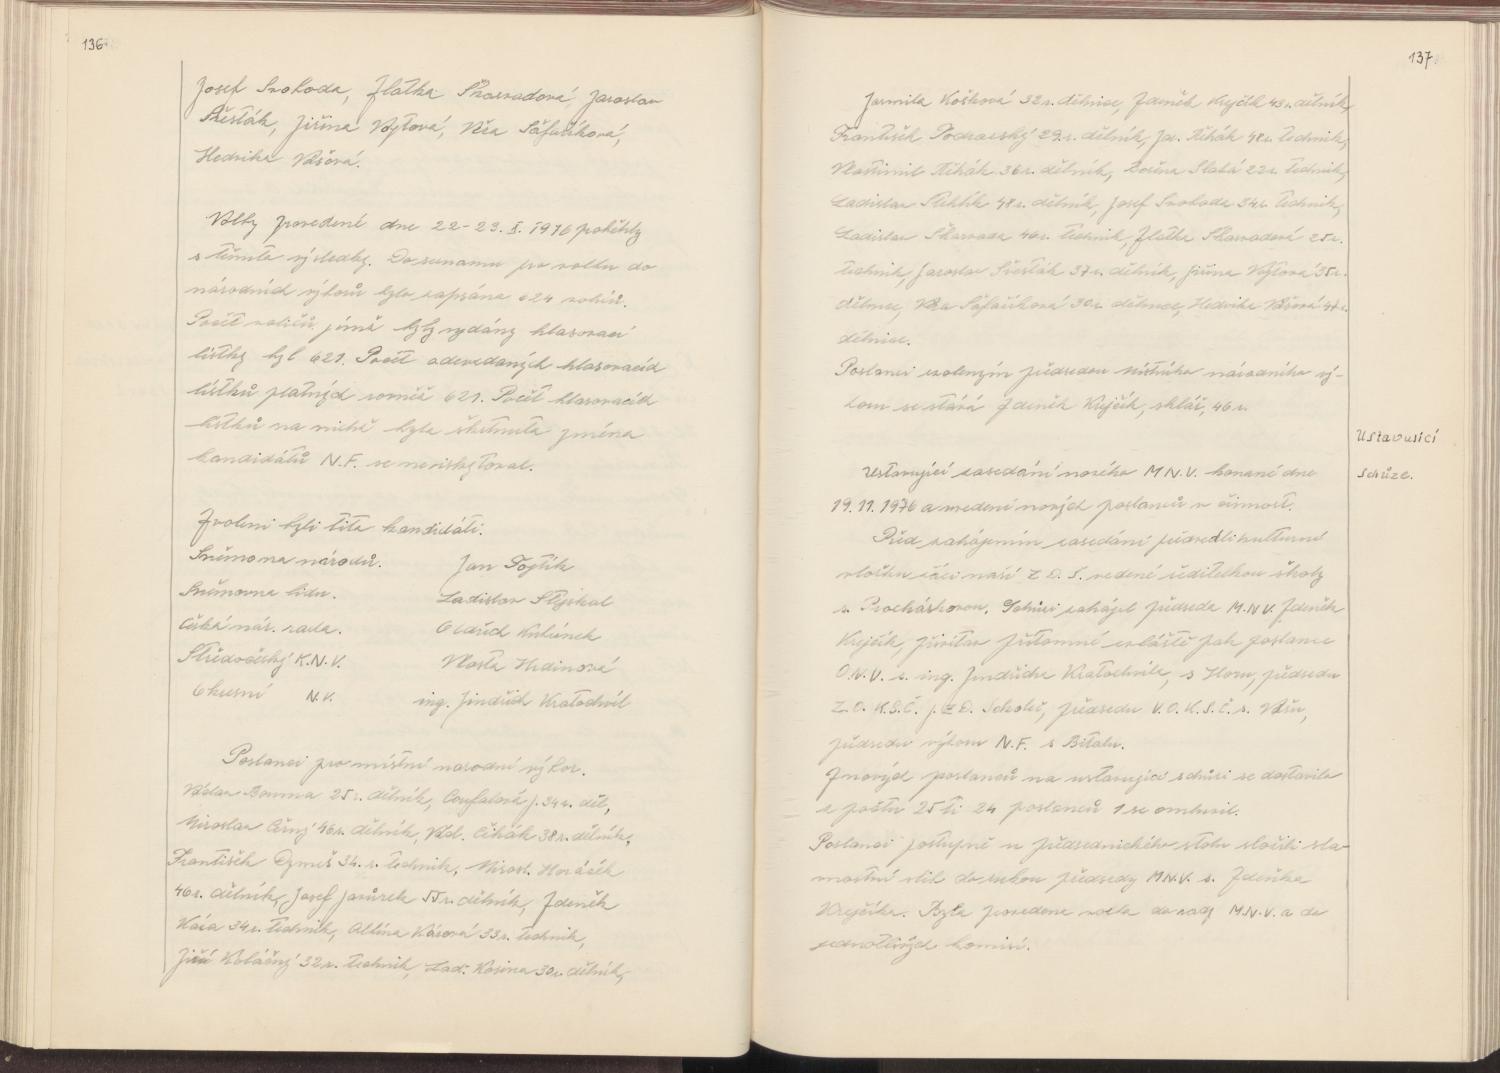 136
Josef Svoboda, Zlatka Škarvadová, Jaroslav
Šesták, Jiřina Vojtová, Věra Šafaříková,
Hedvika Vášová.
Volby provedené dne 22-23. X. 1976 proběhly
s těmito výsledky. Do seznamu pro volbu do
národních výborů bylo zapsáno 624 voličů.
Počet voličů jímž byly vydány hlasovací
lístky byl 621. Počet odevzdaných hlasovacích
lístků platných rovněž 621. Počet hlasovacích
lístků na nichž byla škrtnuta jména
kandidátů N.F. se nevyskytoval.
Zvoleni byli tito kandidáti.
Sněmovna národů. Jan Fojtík
Sněmovna lidu. Ladislav
Česká nár. rada. Oldřich Kulúnek
Středočeský K.N.V. Vlasta Hrdinová
Okresní N.V. ing. Jindřich Kratochvíl
Poslanci pro místní narodní výbor.
Václav Bouma 25 r. dělník, Coufalová J. 34 r. děl,
Miroslav Černý 46 r. dělník, Vlad. Čihák 38 r. dělník,
František 34. r. technik, Mirosl. Horáček
46 r. dělník, Josef Javůrek 55 r. dělník, Zdeněk
Kára 34 r. technik, Alžína Kárová 33 r. technik,
Jiří Koláčný 32 r. technik, Lad. Kosina 30 r. dělník,
137
Jarmila Košková 32 r. dělnice, Zdeněk Krejčík 43 r. dělník,
František Podraský 29 r. dělník, Jar. Řihák 48 r. technik,
Vlastimil Řihák 36 r. dělník, Božena Slabá 22 r. technik,
Ladislav Stehlík 48 r. dělník, Josef Svoboda 34 r. technik,
Ladislav Škarvada 46 r. technik, Zlatka Škarvadová 25 r.
technik, Jaroslav Šesták 37 r. dělník, Jiřina Vojtová 35 r.
dělnice, Věra Šafaříková 30 r. dělnice, Hedvika Vášová 47 r.
dělnice.
Poslanci zvoleným předsedou místního národního vý-
boru se stává Zdeněk Krejčík, sklář, 46 r.
Ustavusící
schůze.
Ustavující zasedání nového M.N.V. konané dne
19. 11. 1976 a uvedení nových poslanců v činnost.
Před zahájením zasedání provedli kulturní
vložku žáci naší Z.D.Š. vedené ředitelkou školy
s. Procházkovou. Schůzi zahájil předseda M.N.V. Zdeněk
Krejčík, přivítav přítomné zvláště pak poslance
O.N.V. s. ing. Jindřicha Kratochvíle, s Horu, předsedu
Z.O. K.S.Č. J.Z.D. předsedu V.O.K.S.Č. s. Vášu,
předsedu výboru N.F. s Bitalu.
Z nových poslanců na ustavující schůzi se dostavilo
z počtu 25 ti 24 poslanců 1 se omluvil.
Poslanci postupně u předsednického stolu složili sla-
vnostní slib do rukou předsedy M.N.V. s. Zdeňka
Krejčíka. Byla provedena volba do rady M.N.V. a do
jednotlivých komisí.